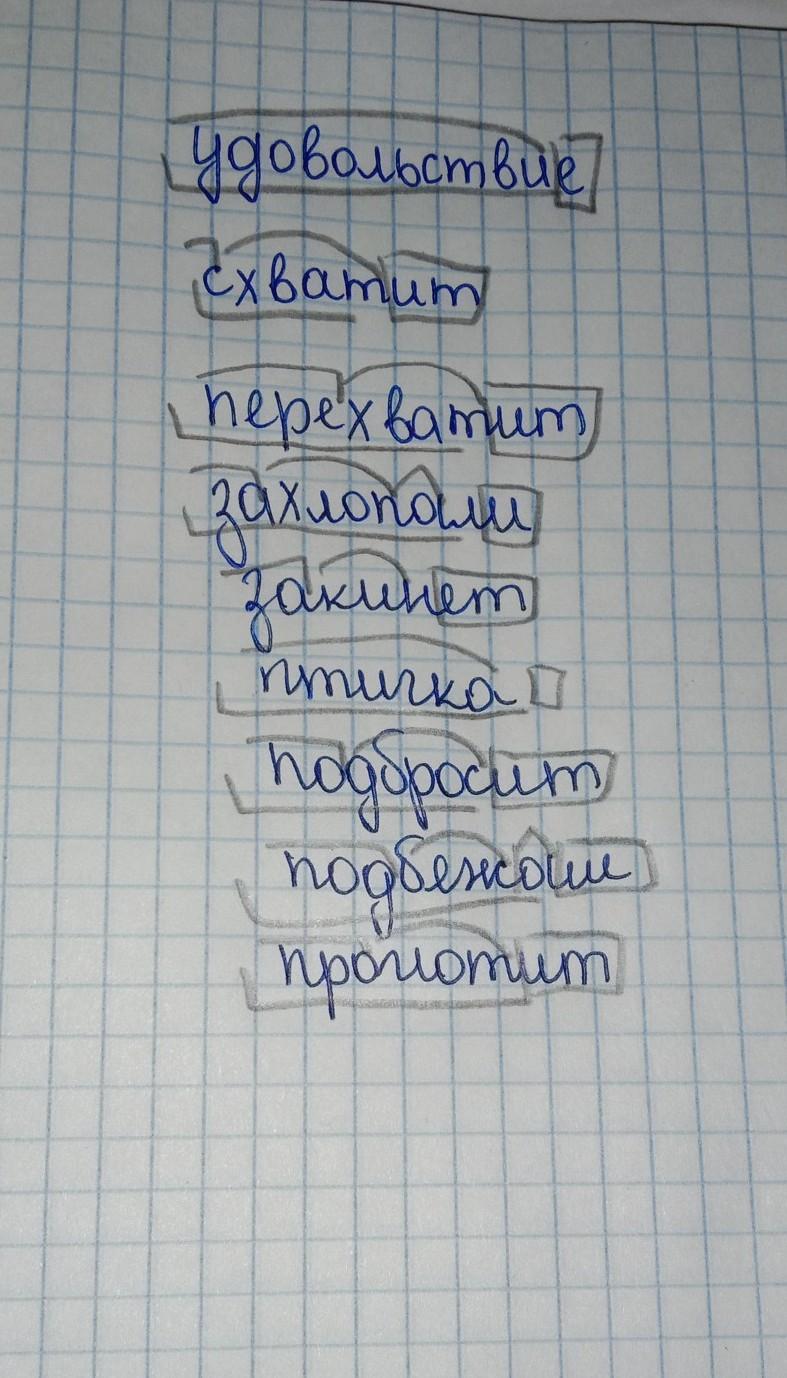 удовольствие
схватит
перехватит
захлопали
закинет
птичка
подбросит
подбежали
проглотит